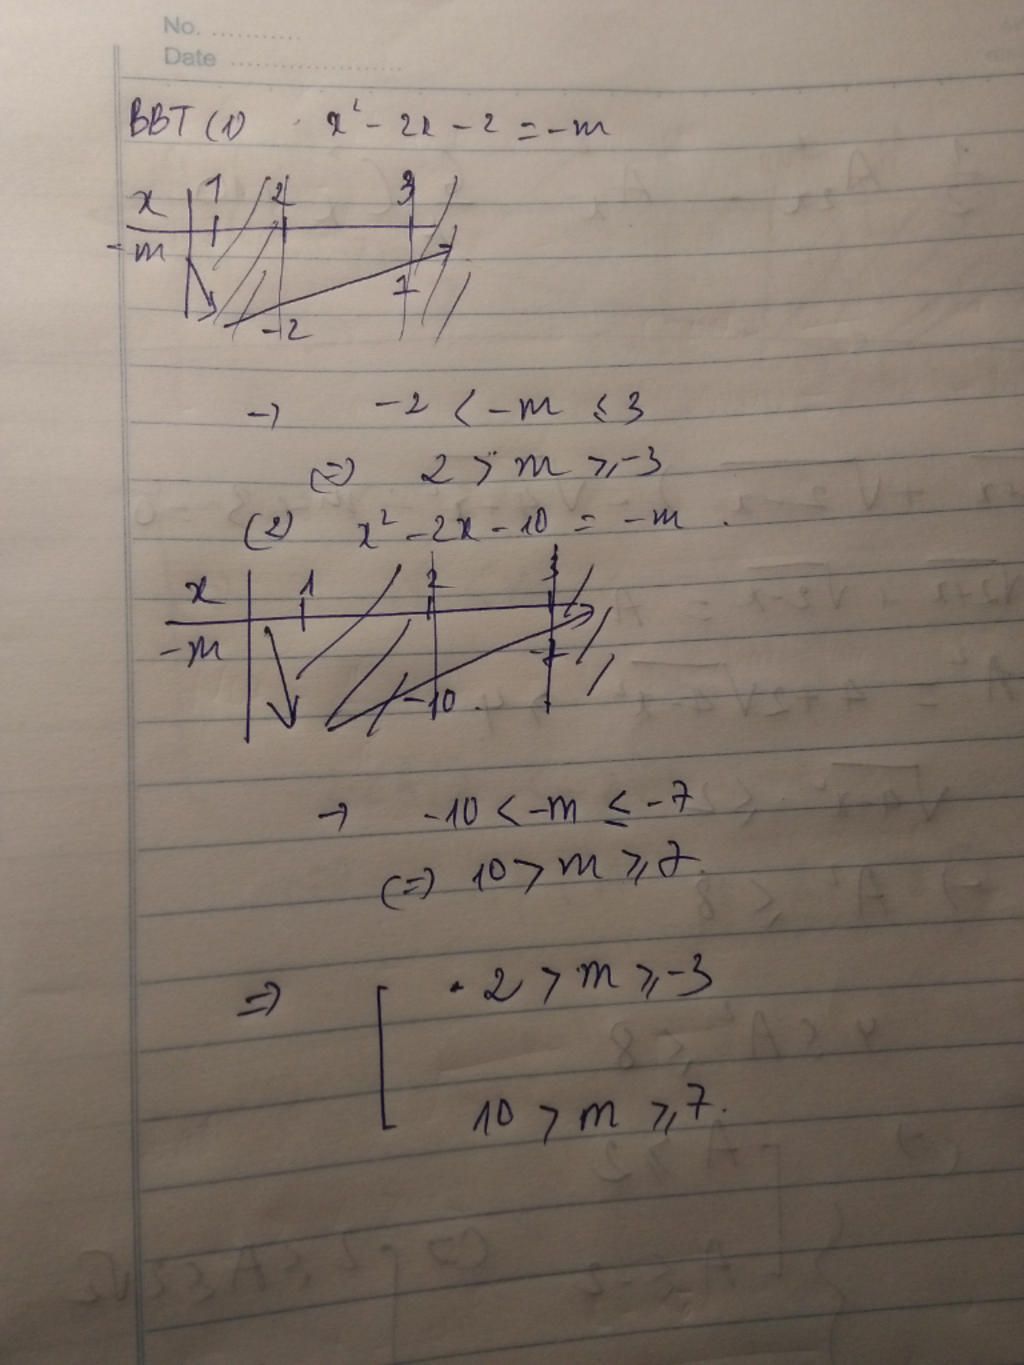 No. ..........
Date ....................
BBT (1) x² - 2x - 2 = -m
x 1 2 3
-m
7
-2
→ -2 < -m ≤ 3
(=) 2 > m ≥ -3
(2) x² - 2x - 10 = -m .
x 1 2 3
-m -7
-10
→ -10 < -m ≤ -7
(=) 10 > m ≥ 7.
=> [ 2 > m ≥ -3
10 > m ≥ 7.